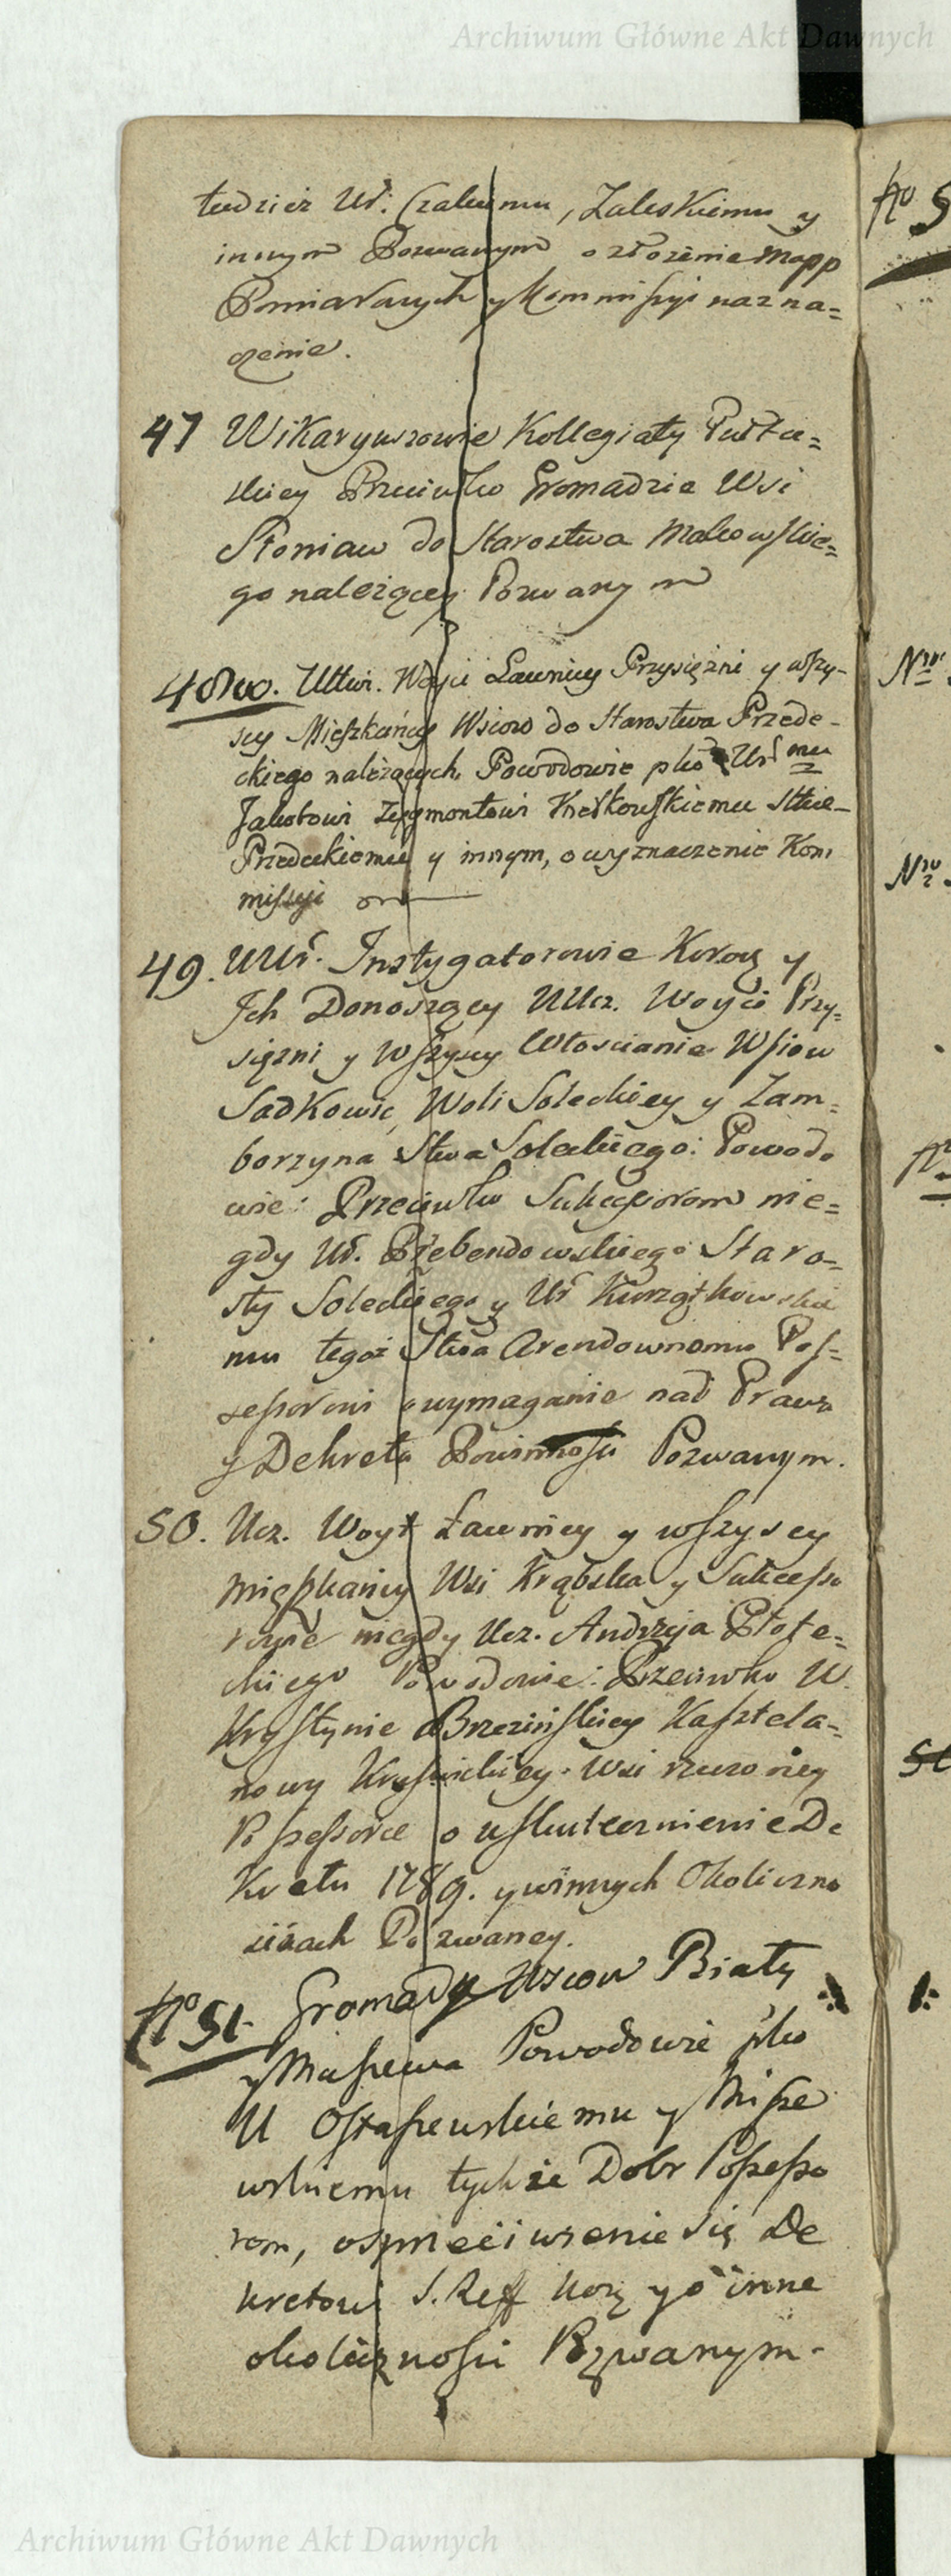 Archiwum Główne Akt Dawnych
tudzież Ur. Czalemu, Zaleskiemu y
innym Pozwanym o złożenie Mapp
Pomiarowych y Kommissyi nazna=
czenie.
47 Wikaryuszowie Kollegiaty Pułtu=
skiey Przeciwko Gromadzie Wsi
Słoniaw do Starostwa Makowskie=
go należącey Pozwanym
48vo. Uttwi. Woyci Ławnicy Przysiężni y wszy-
scy Mieszkańcy Wsiow do Starostwa Przede-
ckiego należących Powodowie pko Ur mu
Jakobowi Zygmontowi Kretkowskiemu Stcie-
Przedeckiemu y innym, o wyznaczenie Kom
missyi
49. UUr. Instygatorowie Korony y
Ich Donoszący UUcz. Woyci Przy=
siężni y Wszyscy Włoscianie Wsiow
Sadkowic, Woli Soleckiey y Zam=
borzyna Stwa Soleckiego: Powodo
wie: Przeciwko Sukcessorom nie=
gdy Ur. Przebendowskiego Staro=
sty Soleckiego y Ur Kurzątkowskie
mu tegoż Stwa Arendownemu Pos=
sessorowi o wymaganie nad Prawa
y Dekreta Powinnosci Pozwanym.
50. Ucz. Woyt Ławnicy y wszyscy
Mieszkańcy Wsi Krąbska y Sukcesso
rowie niegdy Ucz. Andrzeja Płote=
ckiego Powodowie: Przeciwko W.
Krystynie Brzezińskiey Kasztela=
nowy Wsi rzeczoney
Possessorce o uskutecznienie De
Kretu 1789. y w innych Okoliczno
ściach Pozwaney.
Nro 51. Gromady Wsiow Biały
y Maszewa Powodowie pko
U Ostaszewskiemu y Misze
wskiemu tychże Dobr Possesso
rom, o sprzeciwienie się De
kretowi S. Reff Korą y o inne
okoliczności Pozwanym.
Archiwum Główne Akt Dawnych